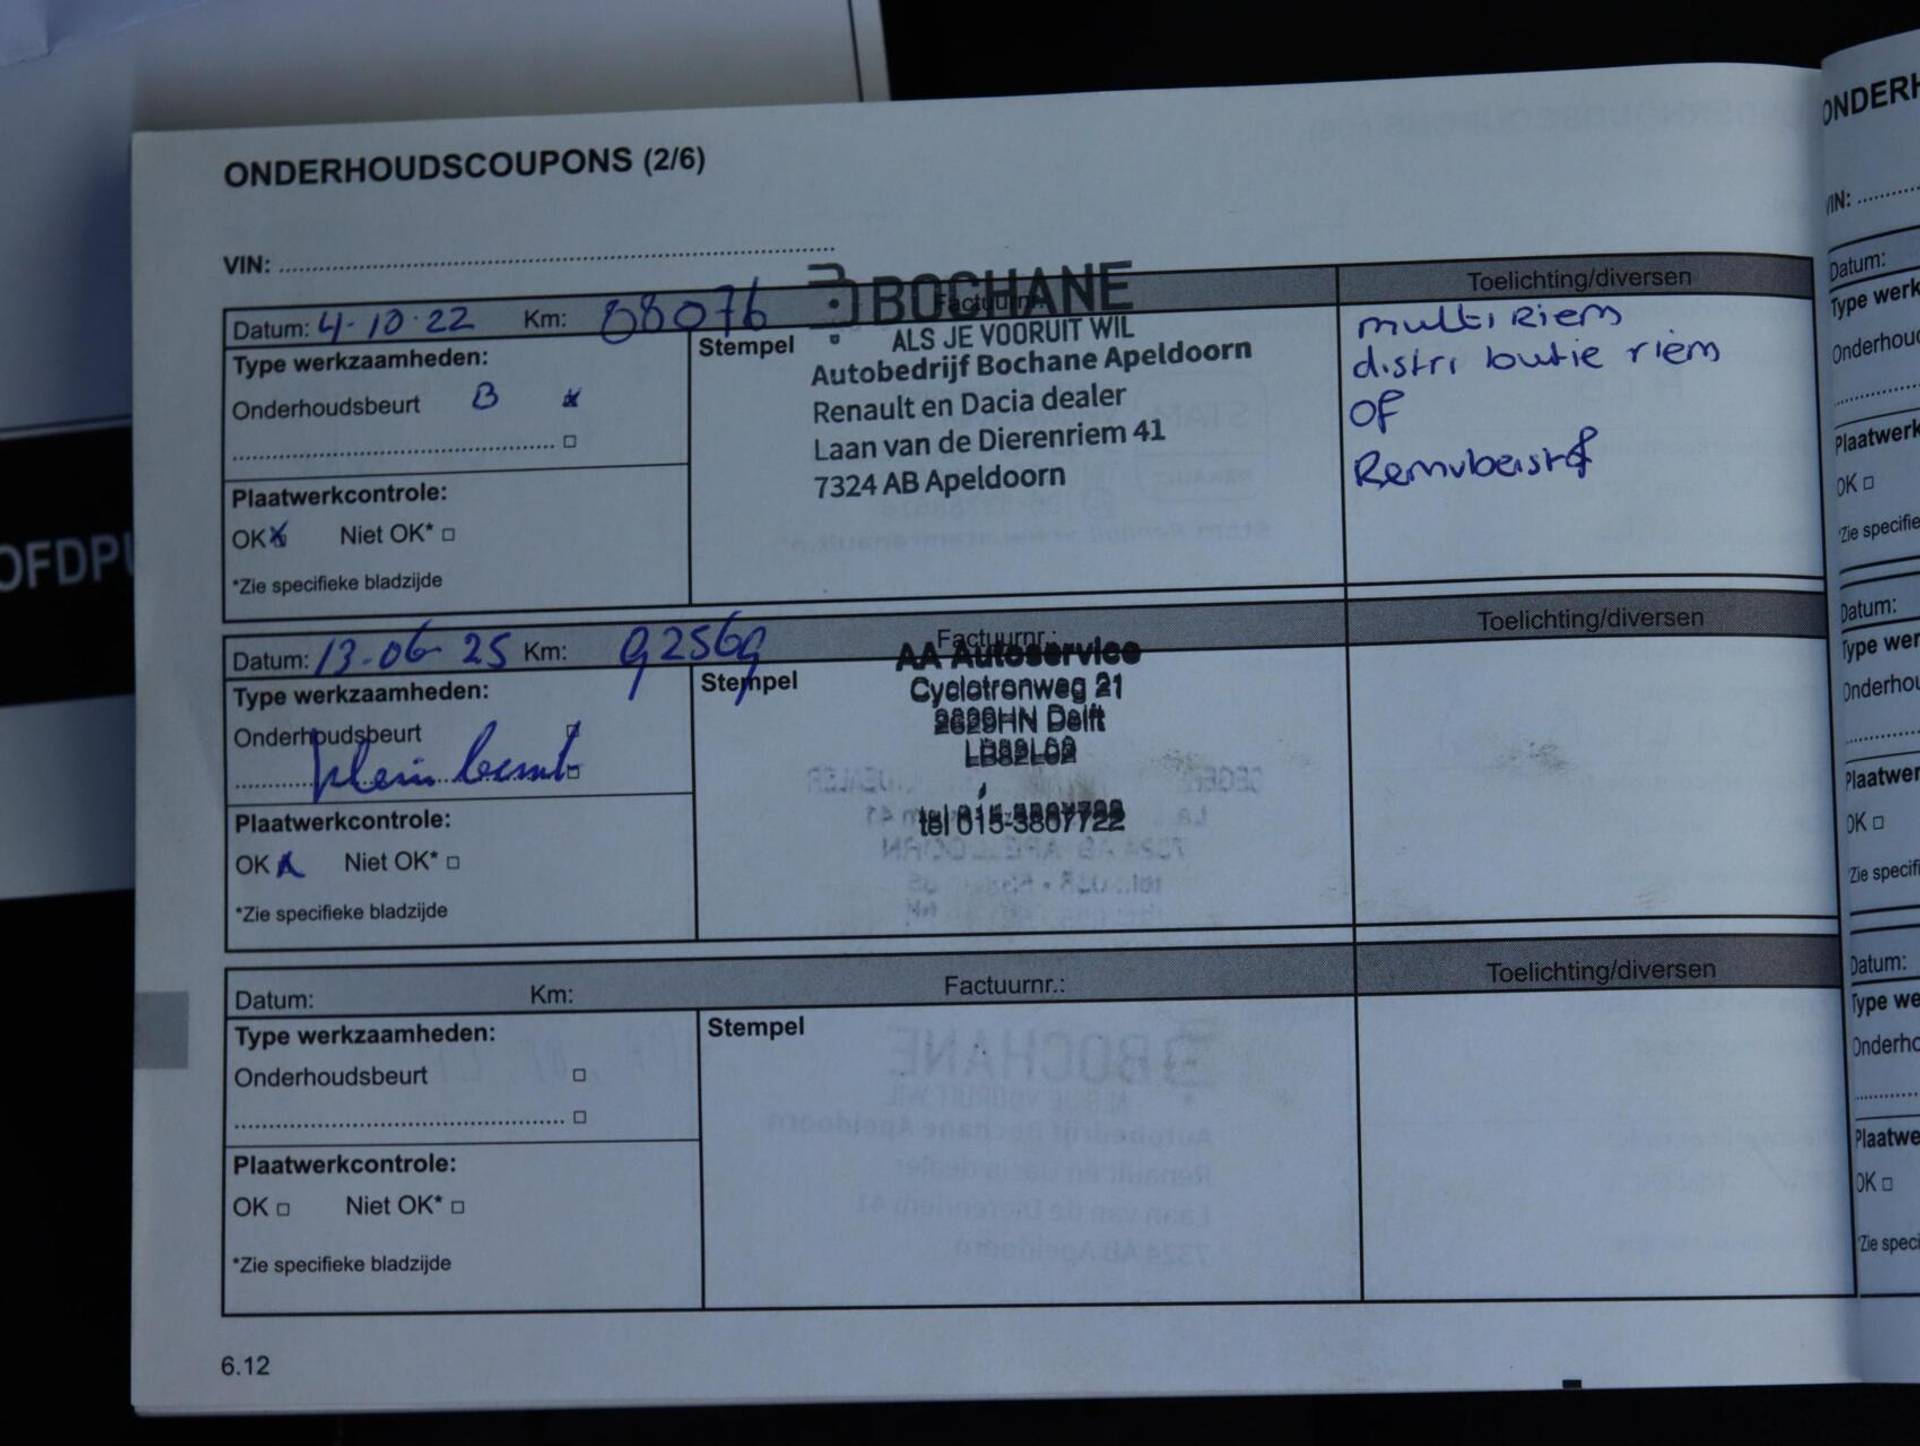 ONDERHOUDSCOUPONS (2/6)
VIN:
BOCHANE
Datum: 4-10-22 Km: 88076 Factuurnr.: Toelichting/diversen
ALS JE VOORUIT WIL
Type werkzaamheden: Stempel
Autobedrijf Bochane Apeldoorn
Renault en Dacia dealer
Laan van de Dierenriem 41
7324 AB Apeldoorn
Onderhoudsbeurt B
multi Riem
distributie riem
OF
Plaatwerkcontrole:
OK Niet OK*
*Zie specifieke bladzijde
Datum: 13-06-25 Km: 92569 Factuurnr.: Toelichting/diversen
AA Autoservice
Type werkzaamheden: Stempel
Cyclotronweg 21
2629HN Delft
Onderhoudsbeurt
klein beurt
tel 015-3807722
Plaatwerkcontrole:
OK Niet OK*
*Zie specifieke bladzijde
Datum: Km: Factuurnr.: Toelichting/diversen
Type werkzaamheden: Stempel
Onderhoudsbeurt
Plaatwerkcontrole:
OK Niet OK*
*Zie specifieke bladzijde
6.12
VIN:
Datum:
OK
Datum:
OK
Datum:
OK